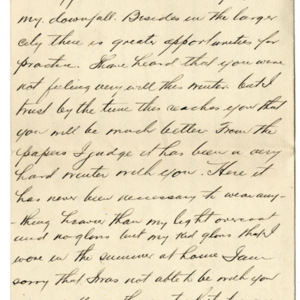 my downfall. Besides in the larger
city there is greater opportunities for
practice. I have heard that you were
not feeling very well this winter. but I
trust by the time this reaches you that
you will be much better. From the
papers I judge it has been a very
hard winter with you. Here it
has never been necessary to wear any-
-thing heavier than my light overcoat
and no gloves but my kid gloves that I
wore in the summer at home I am
sorry that I was not able to be with you